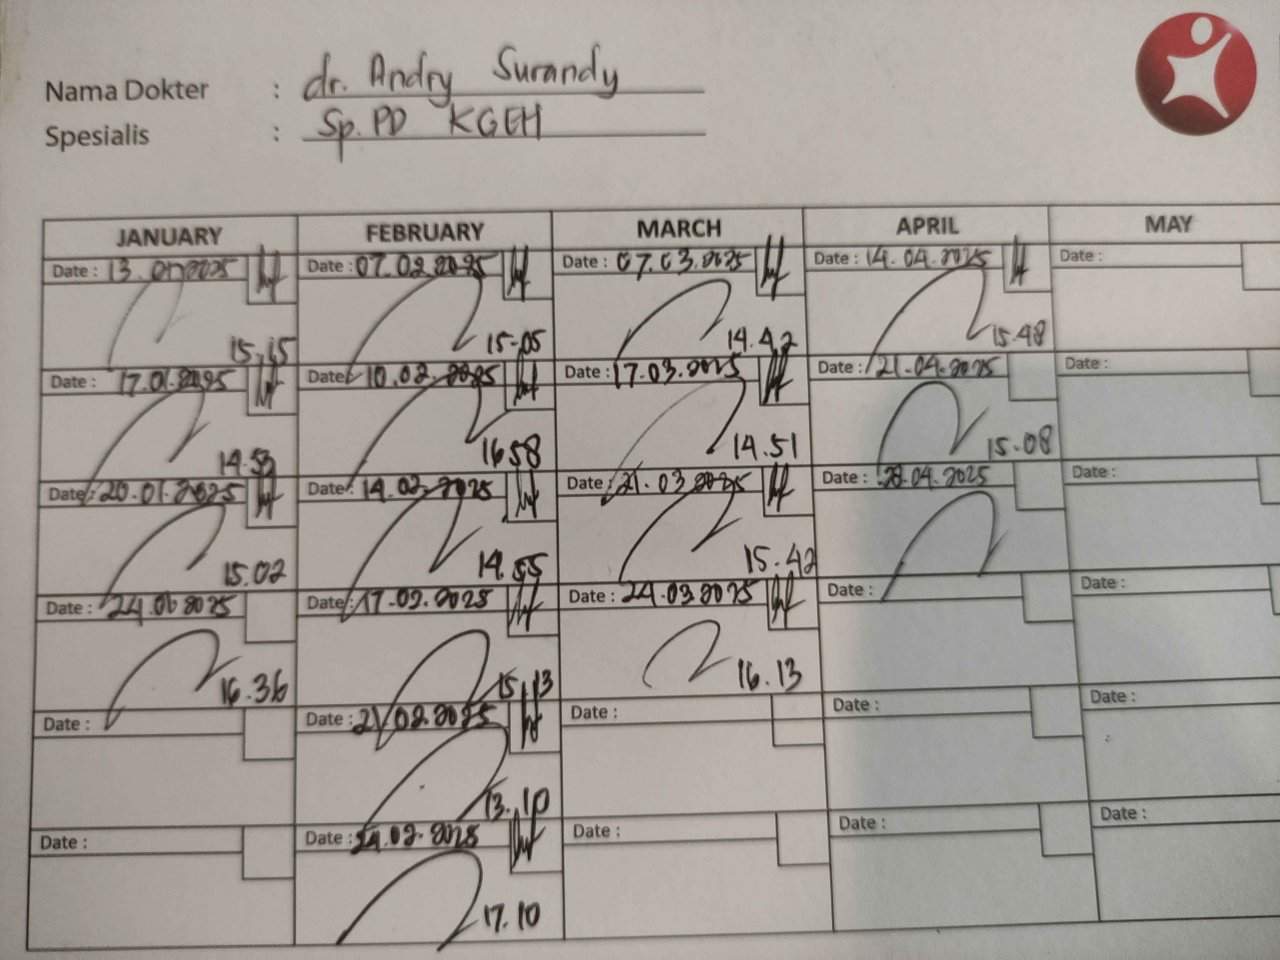 Nama Dokter : dr. Andry Surandy
Spesialis : Sp.PD KGEH
JANUARY FEBRUARY MARCH APRIL MAY
Date : 13.01.2025 Date : 07.02.2025 Date : 07.03.2025 Date : 14.04.2025 Date :
15.15 15-05 14.42 15.48
Date : 17.01.2025 Date : 10.02.2025 Date : 17.03.2025 Date : 21.04.2025 Date :
14.53 16 58 14.51 15.08
Date : 20.01.2025 Date : 14.02.2025 Date : 21.03.2025 Date : 28.04.2025 Date :
15.02 14.55 15.42
Date : 24.01.2025 Date : 17.02.2025 Date : 24.03.2025 Date : Date :
16.36 15.13 16.13
Date : Date : 21.02.2025 Date : Date : Date :
13.10
Date : Date : 24.02.2025 Date : Date : Date :
17.10